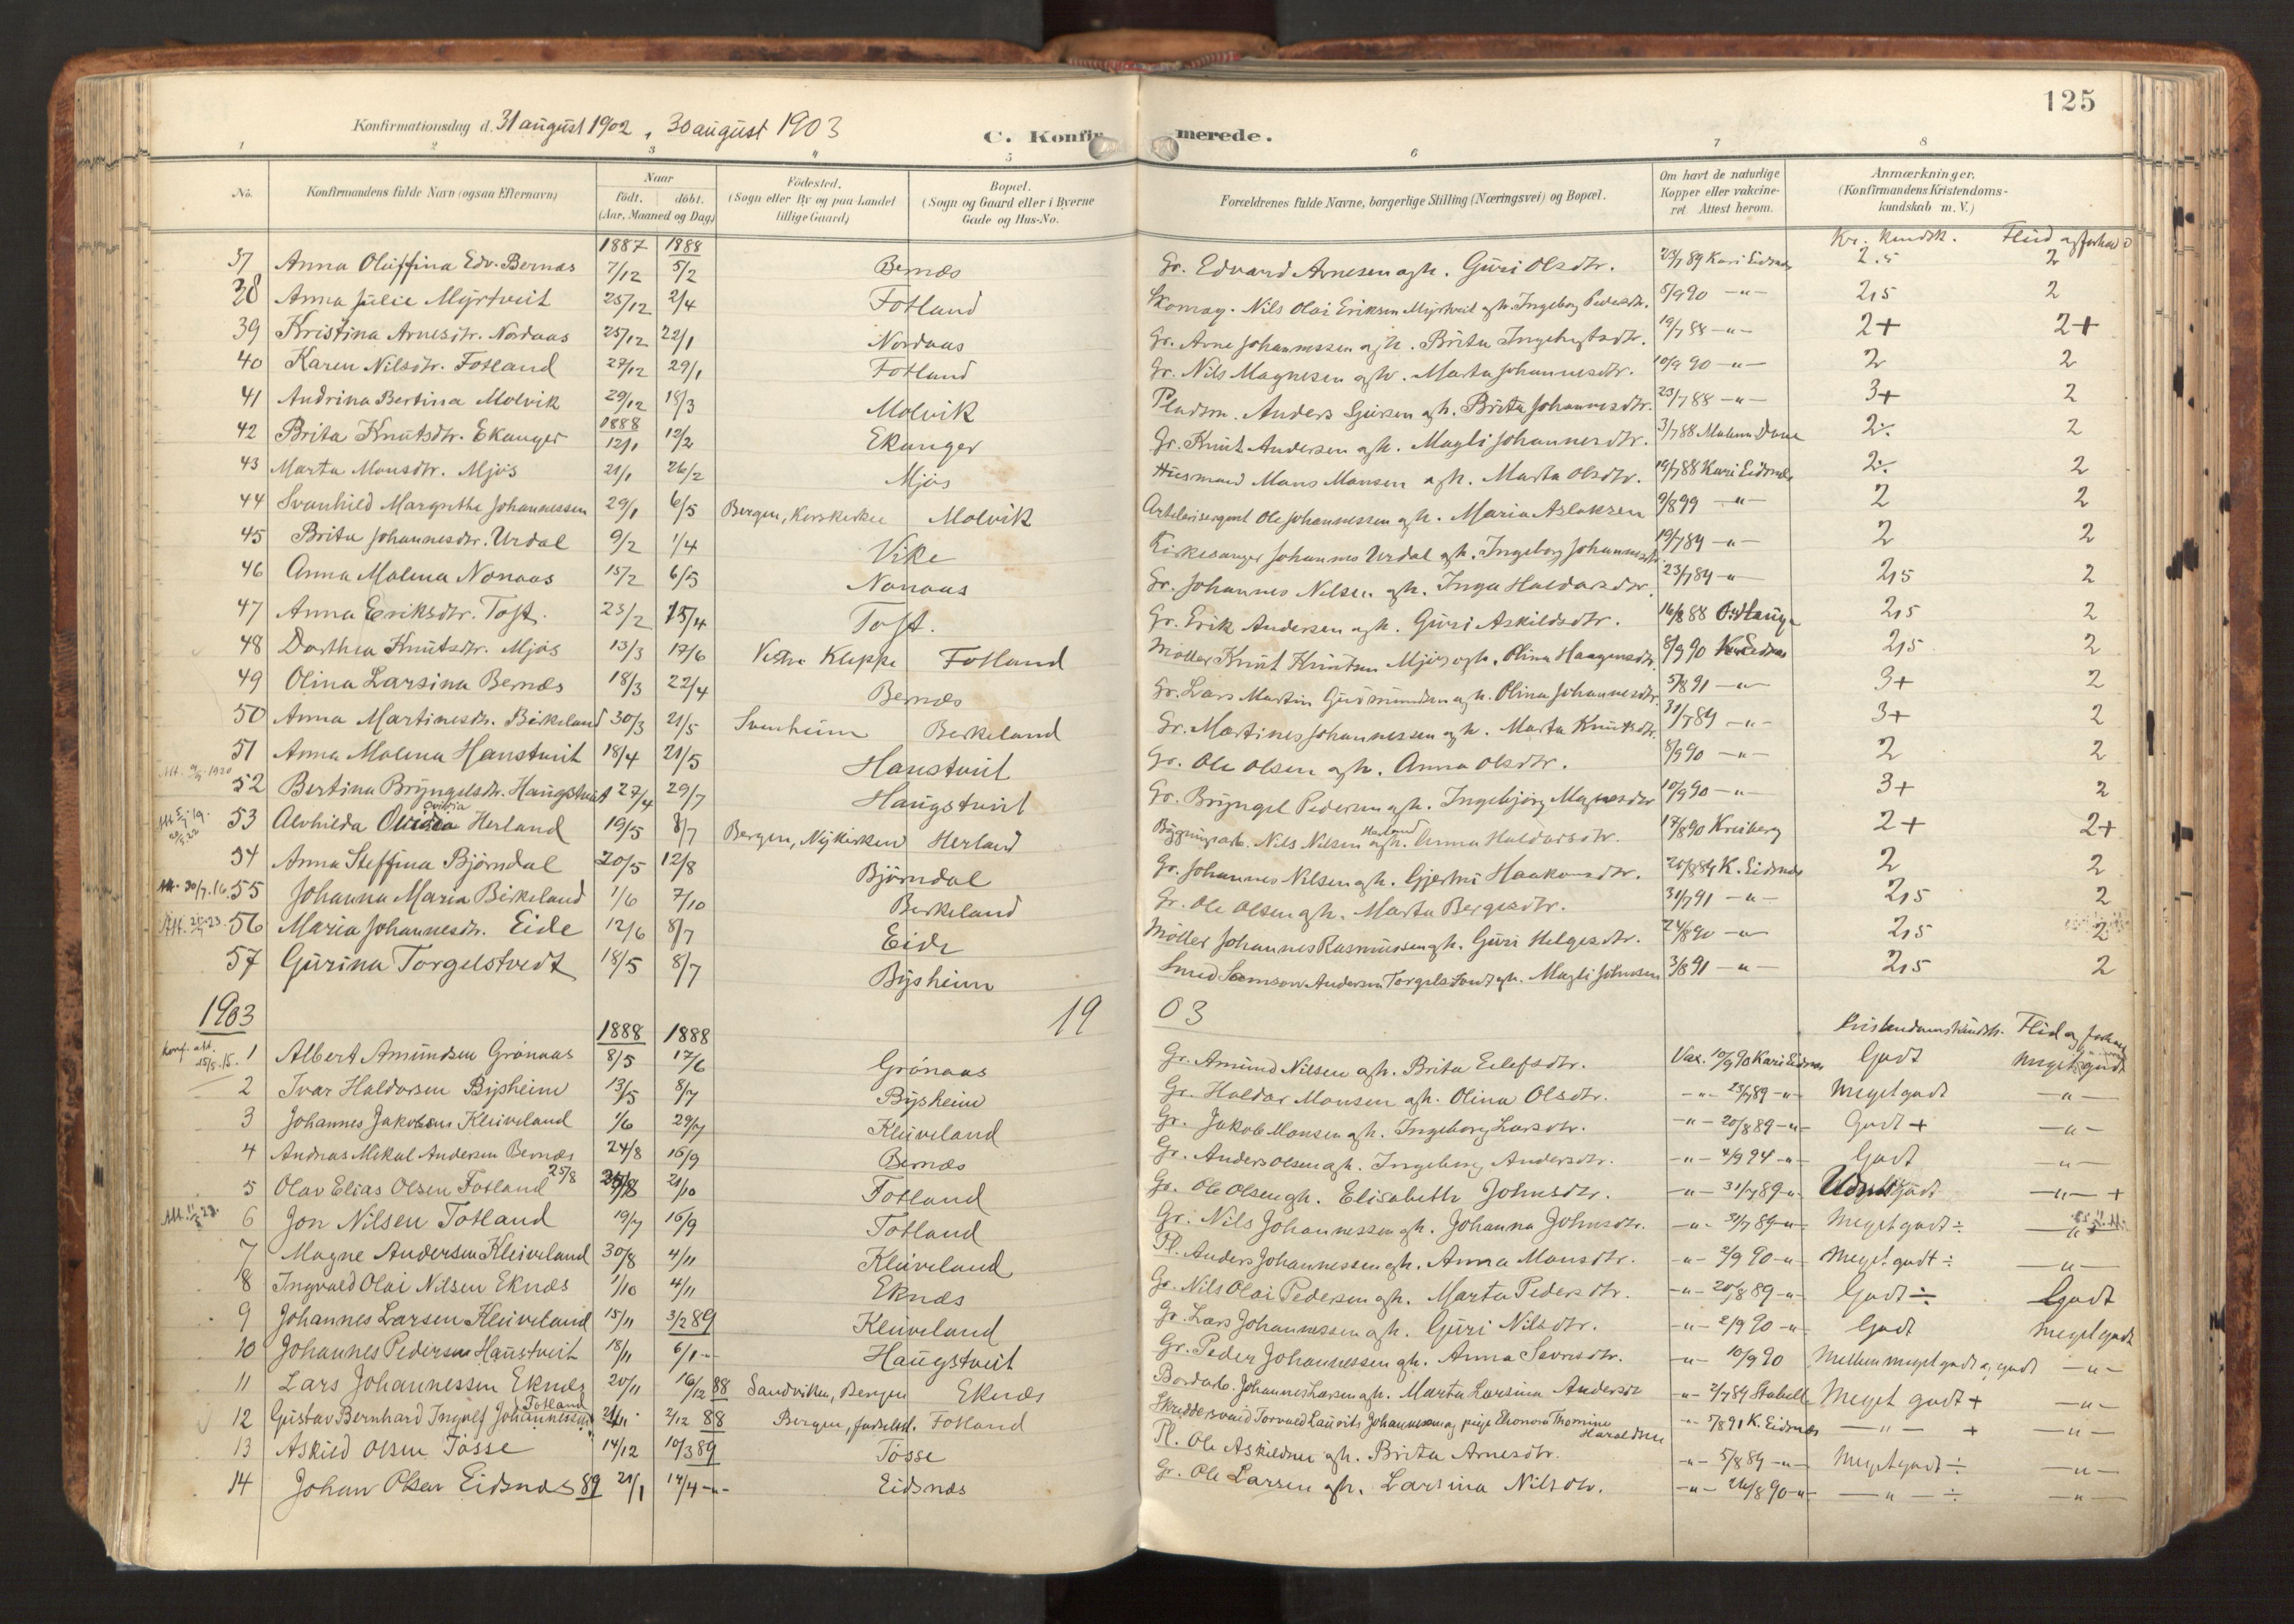 125
Konfirmationsdag d. 31 august 1902, 30 august 1903
C. Konfirmerede.
1 2 3 4 5 6 7 8
No. Konfirmandens fulde Navn (ogsaa Efternavn) Naar født. døbt. (Aar, Maaned og Dag) Fødested. (Sogn eller By og paa Landet tillige Gaard) Bopæl. (Sogn og Gaard eller i Byerne Gade og Hus-No. Forældrenes fulde Navne, borgerlige Stilling (Næringsvei) og Bopæl. Om havt de naturlige Kopper eller vakcineret. Attest herom. Anmærkninger. (Konfirmandens Kristendomskundskab m. V.)
1887 1888 Kr. kundsk. Flid og forhold
37 Anna Oluffina Edv. Bernæs 7/12 5/2 Bernæs Gr. Edvard Arnesen og h. Guri Olsdtr. 23/7 89 Kari Eidsnæs 2.5 2
38 Anna Julie Myrtveit 25/12 2/4 Fotland Skomag. Nils Olai Eriksen Myrtveit og h. Ingeborg Pedersdtr. 8/9 90 -"- 2,5 2
39 Kristina Arnesdtr. Nordaas 25/12 22/1 Nordaas Gr. Arne Johannessen og h. Brita Ingebrigtsdtr. 19/7 88 -"- 2+ 2+
40 Karen Nilsdtr. Fotland 27/12 29/1 Fotland Gr. Nils Magnesen og h. Marta Johannesdtr. 10/9 90 -"- 2 2
41 Andrina Bertina Molvik 29/12 18/3 Molvik Pladsm. Anders Sjursen og h. Brita Johannesdtr. 23/7 88 -"- 3+ 2
1888
42 Brita Knutsdtr. Ekanger 12/1 12/2 Ekanger Gr. Knut Andersen og h. Magli Johannesdtr. 3/7 88 2÷ 2
43 Marta Monsdtr. Mjøs 21/1 26/2 Mjøs Husmand Mons Monsen og h. Marta Olsdtr. 19/7 88 Kari Eidsnæs 2÷ 2
44 Svanhild Margrethe Johannessen 29/1 6/5 Bergen, Korskirken Molvik Artelerisergent Ole Johannessen og h. Maria Aslaksen 9/8 99 -"- 2 2
45 Brita Johannesdtr. Urdal 9/2 1/4 Vike Kirkesanger Johannes Urdal og h. Ingeborg Johannesdtr. 19/7 89 -"- 2 2
46 Anna Malena Nonaas 15/2 6/5 Nonaas Gr. Johannes Nilsen og h. Inga Haldorsdtr. 23/7 89 -"- 2,5 2
47 Anna Eriksdtr. Toft. 23/2 15/4 Toft. Gr. Erik Andersen og h. Guri Askildsdtr. 16/8 88 2,5 2
48 Dorthea Knutsdtr. Mjøs 13/3 17/6 Vestre Kleppe Fotland Møller Knut Knutsen Mjøs og h. Olina Haagensdtr. 8/9 90 K. Eidsnæs 2,5 2
49 Olina Larsina Bernæs 18/3 22/4 Bernæs Gr. Lars Martin Gudmundsen og h. Olina Johannesdtr. 5/8 91 -"- 3+ 2
50 Anna Martinesdtr. Birkeland 30/3 21/5 Svenheim Birkeland Gr. Martines Johannessen og h. Marta Knutsdtr. 31/7 89 -"- 3+ 2
51 Anna Malena Haustveit 18/4 21/5 Haustveit Gr. Ole Olsen og h. Anna Olsdtr. 8/9 90 -"- 2 2
52 Bertina Bryngelsdtr. Haugstveit 27/4 29/7 Haugstveit Gr. Bryngel Pedersen og h. Ingebjørg Magnesdtr 10/9 90 -"- 3+ 2
53 Alvhilda Herland 19/5 8/7 Bergen, Nykirken Herland Bygningsarb. Nils Nilsen Herland og h. Anna Haldorsdtr. 17/8 90 Kreiberg 2+ 2+
54 Anna Steffina Bjørndal 20/5 12/8 Bjørndal Gr. Johannes Nilsen og h. Gjertrui Haakonsdtr. 25/8 89 K. Eidsnæs 2 2
Att. 30/7.16. 55 Johanna Maria Birkeland 1/6 7/10 Birkeland Gr. Ole Olsen og h. Marta Bergesdtr. 31/7 91 -"- 2,5 2
56 Maria Johannesdtr. Eide 12/6 8/7 Eide Møller Johannes Rasmussen og h. Guri Helgesdtr. 24/8 90 -"- 2,5 2
57 Gurina Torgelstvedt 18/5 8/7 Bysheim Smed Samson Andersen Torgelstvedt og h. Magli Johnsen 3/8 91 -"- 2,5 2
1903 1903
1888 1888 Kristendomskundsk. Flid og forhold
Konf. att. 15/5.15. 1 Albert Amundsen Grønaas 8/5 17/6 Grønaas Gr. Amund Nilsen og h. Brita Eilefsdtr. Vax. 10/9 90 Kari Eidsnæs Godt Meget godt
2 Ivar Haldorsen Bysheim 13/5 8/7 Bysheim Gr. Haldor Monsen og h. Olina Olsdtr. -"- 23/7 89 -"- Meget godt -"-
3 Johannes Jakobsen Kleiveland 1/6 29/7 Kleiveland Gr. Jakob Monsen og h. Ingeborg Larsdtr. -"- 20/8 89 -"- Godt + -"-
4 Andreas Mikal Andersen Bernæs 24/8 16/9 Bernæs Gr. Anders Olsen og h. Ingeborg Andersdtr. -"- 4/9 94 -"- Godt -"-
5 Olav Elias Olsen Fotland 25/8 25/8 21/10 Fotland Gr. Ole Olsen og h. Elisabeth Johnsdtr. -"- 31/7 89 -"- godt -"- +
6 Jon Nilsen Totland 19/7 16/9 Totland Gr. Nils Johannessen og h. Johanna Johnsdtr. -"- 31/7 89 -"- Meget godt ÷ -"-
7 Magne Andersen Kleiveland 30/8 4/11 Kleiveland Pl. Anders Johannessen og h. Anna Monsdtr. -"- 2/9 90 -"- Meget godt ÷ -"-
8 Ingvald Olai Nilsen Eknæs 1/10 4/11 Eknæs Gr. Nils Olai Pedersen og h. Marta Pedersdtr. -"- 20/8 89 -"- Godt ÷ Godt
9 Johannes Larsen Kleiveland 15/11 3/2 89 Kleiveland Gr. Lars Johannessen og h. Guri Nilsdtr. -"- 2/9 90 -"- Godt Meget godt
10 Johannes Pedersen Haustveit 18/11 6/1 -"- Haugstveit Gr. Peder Johannessen og h. Anna Sevrisdtr. -"- 10/9 90 Mellem meget godt og godt -"-
11 Lars Johannessen Eknæs 20/11 16/12 88 Sandviken, Bergen Eknæs Bordarb. Johannes Larsen og h. Marta Larsina Andersdtr -"- 2/7 89 Stabell Meget godt + -"-
12 Gustav Bernhard Ingolf Johannessen Fotland 21/11 2/12 88 Bergen, fødselsst. Fotland Skreddersvend Torvald Lauvits Johannessen og pige Elenora Thomine Haraldsen -"- 5/8 91 K. Eidsnæs -"- + -"-
13 Askild Olsen Tosse 14/12 10/3 89 Tosse Pl. Ole Askildsen og h. Brita Arnesdtr. -"- 5/8 89 -"- Meget godt ÷ -"-
14 Johan Olsen Eidsnæs 89 21/1 14/4 -"- Eidsnæs Gr. Ole Larsen og h. Larsina Nilsdtr. -"- 26/8 90 -"- -"- ÷ -"-